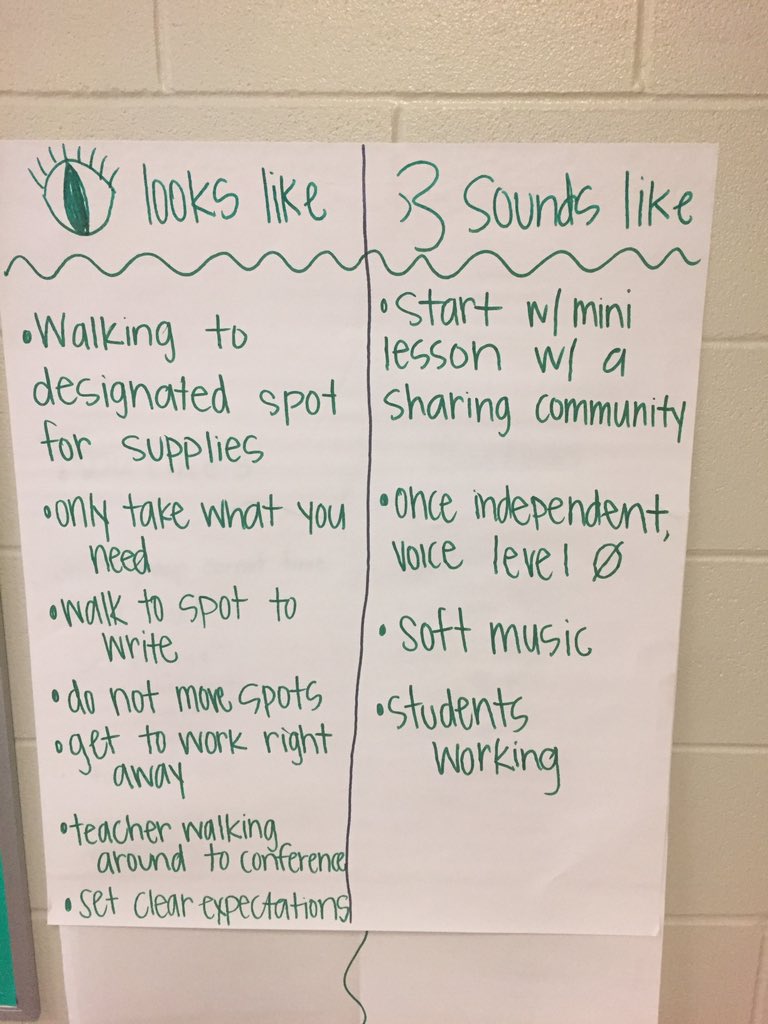 looks like
•Walking to
designated spot
for supplies
•only take what you
need
•walk to spot to
write
•do not move spots
•get to work right
away
•teacher walking
around to conference
•set clear expectations
Sounds like
•Start w/ mini
lesson w/ a
sharing community
•once independent,
voice level Ø
•soft music
•students
working